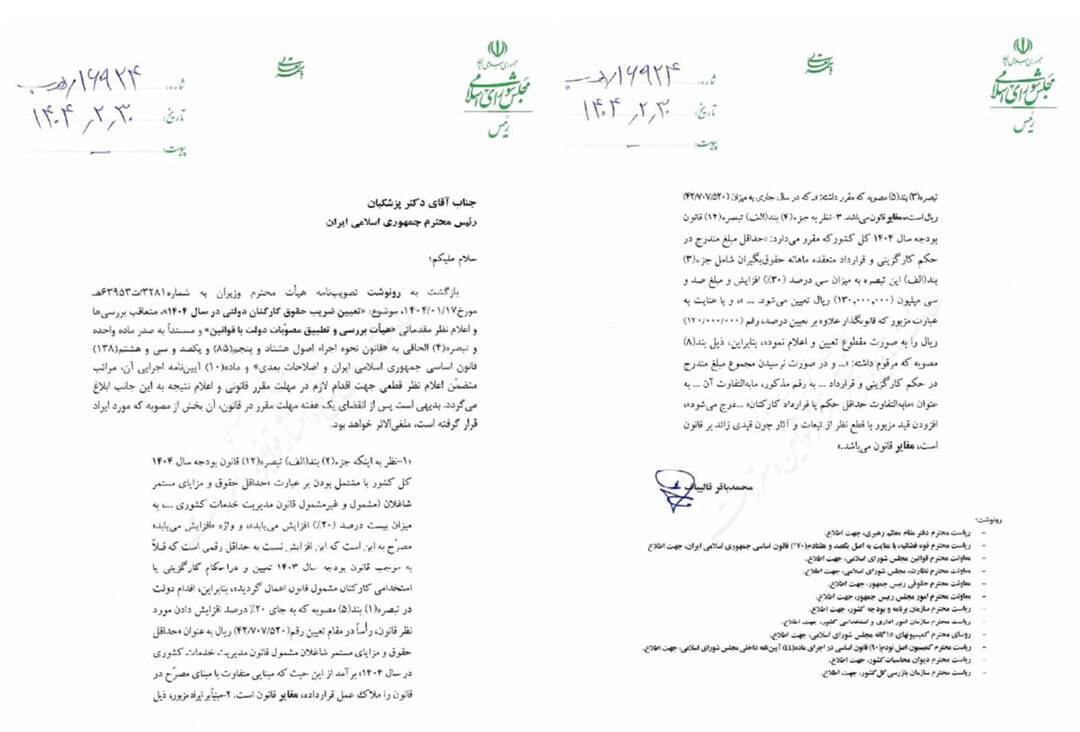 جمهوری اسلامی ایران
مجلس شورای اسلامی
رئیس
شماره: ۱۶۹۲۴/
تاریخ: ۱۴۰۴/۲/۳۰
پیوست: ــ
جناب آقای دکتر پزشکیان
رئیس محترم جمهوری اسلامی ایران
سلام علیکم؛
بازگشت به رونوشت تصویب‌نامه هیأت محترم وزیران به شماره۳۲۸۱/ت۶۳۹۵۳هـ
مورخ۱۴۰۴/۰۱/۱۷، موضوع: «تعیین ضریب حقوق کارکنان دولتی در سال ۱۴۰۴»، متعاقب بررسی‌ها
و اعلام نظر مقدماتی «هیأت بررسی و تطبیق مصوّبات دولت با قوانین» و مستنداً به صدر ماده واحده
و تبصره(۴) الحاقی به «قانون نحوه اجراء اصول هشتاد و پنجم(۸۵) و یکصد و سی و هشتم(۱۳۸)
قانون اساسی جمهوری اسلامی ایران و اصلاحات بعدی» و ماده(۱۰) آیین‌نامه اجرایی آن، مراتب
متضمّن اعلام نظر قطعی جهت اقدام لازم در مهلت مقرر قانونی و اعلام نتیجه به این جانب ابلاغ
می‌گردد. بدیهی است پس از انقضای یک هفته مهلت مقرر در قانون، آن بخش از مصوبه که مورد ایراد
قرار گرفته است، ملغی‌الاثر خواهد بود.
«۱-نظر به اینکه جزء(۲) بند(الف) تبصره(۱۲) قانون بودجه سال ۱۴۰۴
کل کشور با مشتمل بودن بر عبارت «حداقل حقوق و مزایای مستمر
شاغلان (مشمول و غیرمشمول قانون مدیریت خدمات کشوری ...، به
میزان بیست درصد (۲۰٪) افزایش می‌یابد»، و واژه «افزایش می‌یابد»
مصرّح به این است که این افزایش نسبت به حداقل رقمی است که قبلاً
به موجب قانون بودجه سال ۱۴۰۳ تعیین و دراحکام کارگزینی یا
استخدامی کارکنان مشمول قانون اعمال گردیده، بنابراین، اقدام دولت
در تبصره(۱) بند(۵) مصوبه که به جای ۲۰٪ درصد افزایش دادن مورد
نظر قانون، رأساً در مقام تعیین رقم(۴۲/۷۰۷/۵۲۰) ریال به عنوان «حداقل
حقوق و مزایای مستمر شاغلان مشمول قانون مدیریت خدمات کشوری
در سال ۱۴۰۴» برآمد از این حیث که مبنایی متفاوت با مبنای مصرّح در
قانون را ملاک عمل قرارداده، مغایر قانون است. ۲-مبنیاً بر ایراد مزبور، ذیل
جمهوری اسلامی ایران
مجلس شورای اسلامی
رئیس
شماره: ۱۶۹۲۴/
تاریخ: ۱۴۰۴/۲/۳۰
پیوست: ــ
تبصره(۳) بند(۵) مصوبه که مقرر داشته: «...که در سال جاری به میزان (۴۲/۷۰۷/۵۲۰)
ریال است»، مغایر قانون می‌باشد. ۳-نظر به جزء(۴) بند(الف) تبصره(۱۲) قانون
بودجه سال ۱۴۰۴ کل کشور که مقرر می‌دارد: «حداقل مبلغ مندرج در
حکم کارگزینی و قرارداد منعقده ماهانه حقوق‌بگیران شامل جزء(۳)
بند(الف) این تبصره به میزان سی درصد (۳۰٪) افزایش و مبلغ صد و
سی میلیون (۱۳۰,۰۰۰,۰۰۰) ریال تعیین می‌شود. ... »، و با عنایت به
عبارت مزبور که قانونگذار علاوه بر تعیین درصد، رقم (۱۲۰/۰۰۰/۰۰۰)
ریال را به صورت مقطوع تعیین و اعلام نموده، بنابراین، ذیل بند(۸)
مصوبه که مرقوم داشته: «... و در صورت نرسیدن مجموع مبلغ مندرج
در حکم کارگزینی و قرارداد ... به رقم مذکور، مابه‌التفاوت آن ... به
عنوان «مابه‌التفاوت حداقل حکم یا قرارداد کارکنان» ...درج می‌شود»،
افزودن قید مزبور با قطع نظر از تبعات و آثار چون قیدی زائد بر قانون
است، مغایر قانون می‌باشد.»
محمدباقر قالیباف
رونوشت:
- ریاست محترم دفتر مقام معظم رهبری، جهت اطلاع.
- ریاست محترم قوه قضائیه، با عنایت به اصل یکصد و هفتادم(۱۷۰) قانون اساسی جمهوری اسلامی ایران، جهت اطلاع.
- معاونت محترم قوانین مجلس شورای اسلامی، جهت اطلاع.
- معاونت محترم نظارت، مجلس شورای اسلامی، جهت اطلاع.
- معاونت محترم حقوقی رییس جمهور، جهت اطلاع.
- معاونت محترم امور مجلس رییس جمهور، جهت اطلاع.
- ریاست محترم سازمان برنامه و بودجه کشور، جهت اطلاع.
- ریاست محترم سازمان امور اداری و استخدامی کشور، جهت اطلاع.
- روسای محترم کمیسیونهای ۱۵گانه مجلس شورای اسلامی، جهت اطلاع.
- ریاست محترم کمیسیون اصل نودم(۹۰) قانون اساسی در اجرای ماده(۴۴) آیین‌نامه داخلی مجلس شورای اسلامی، جهت اطلاع.
- ریاست محترم دیوان محاسبات کشور، جهت اطلاع.
- ریاست محترم سازمان بازرسی کل کشور، جهت اطلاع.